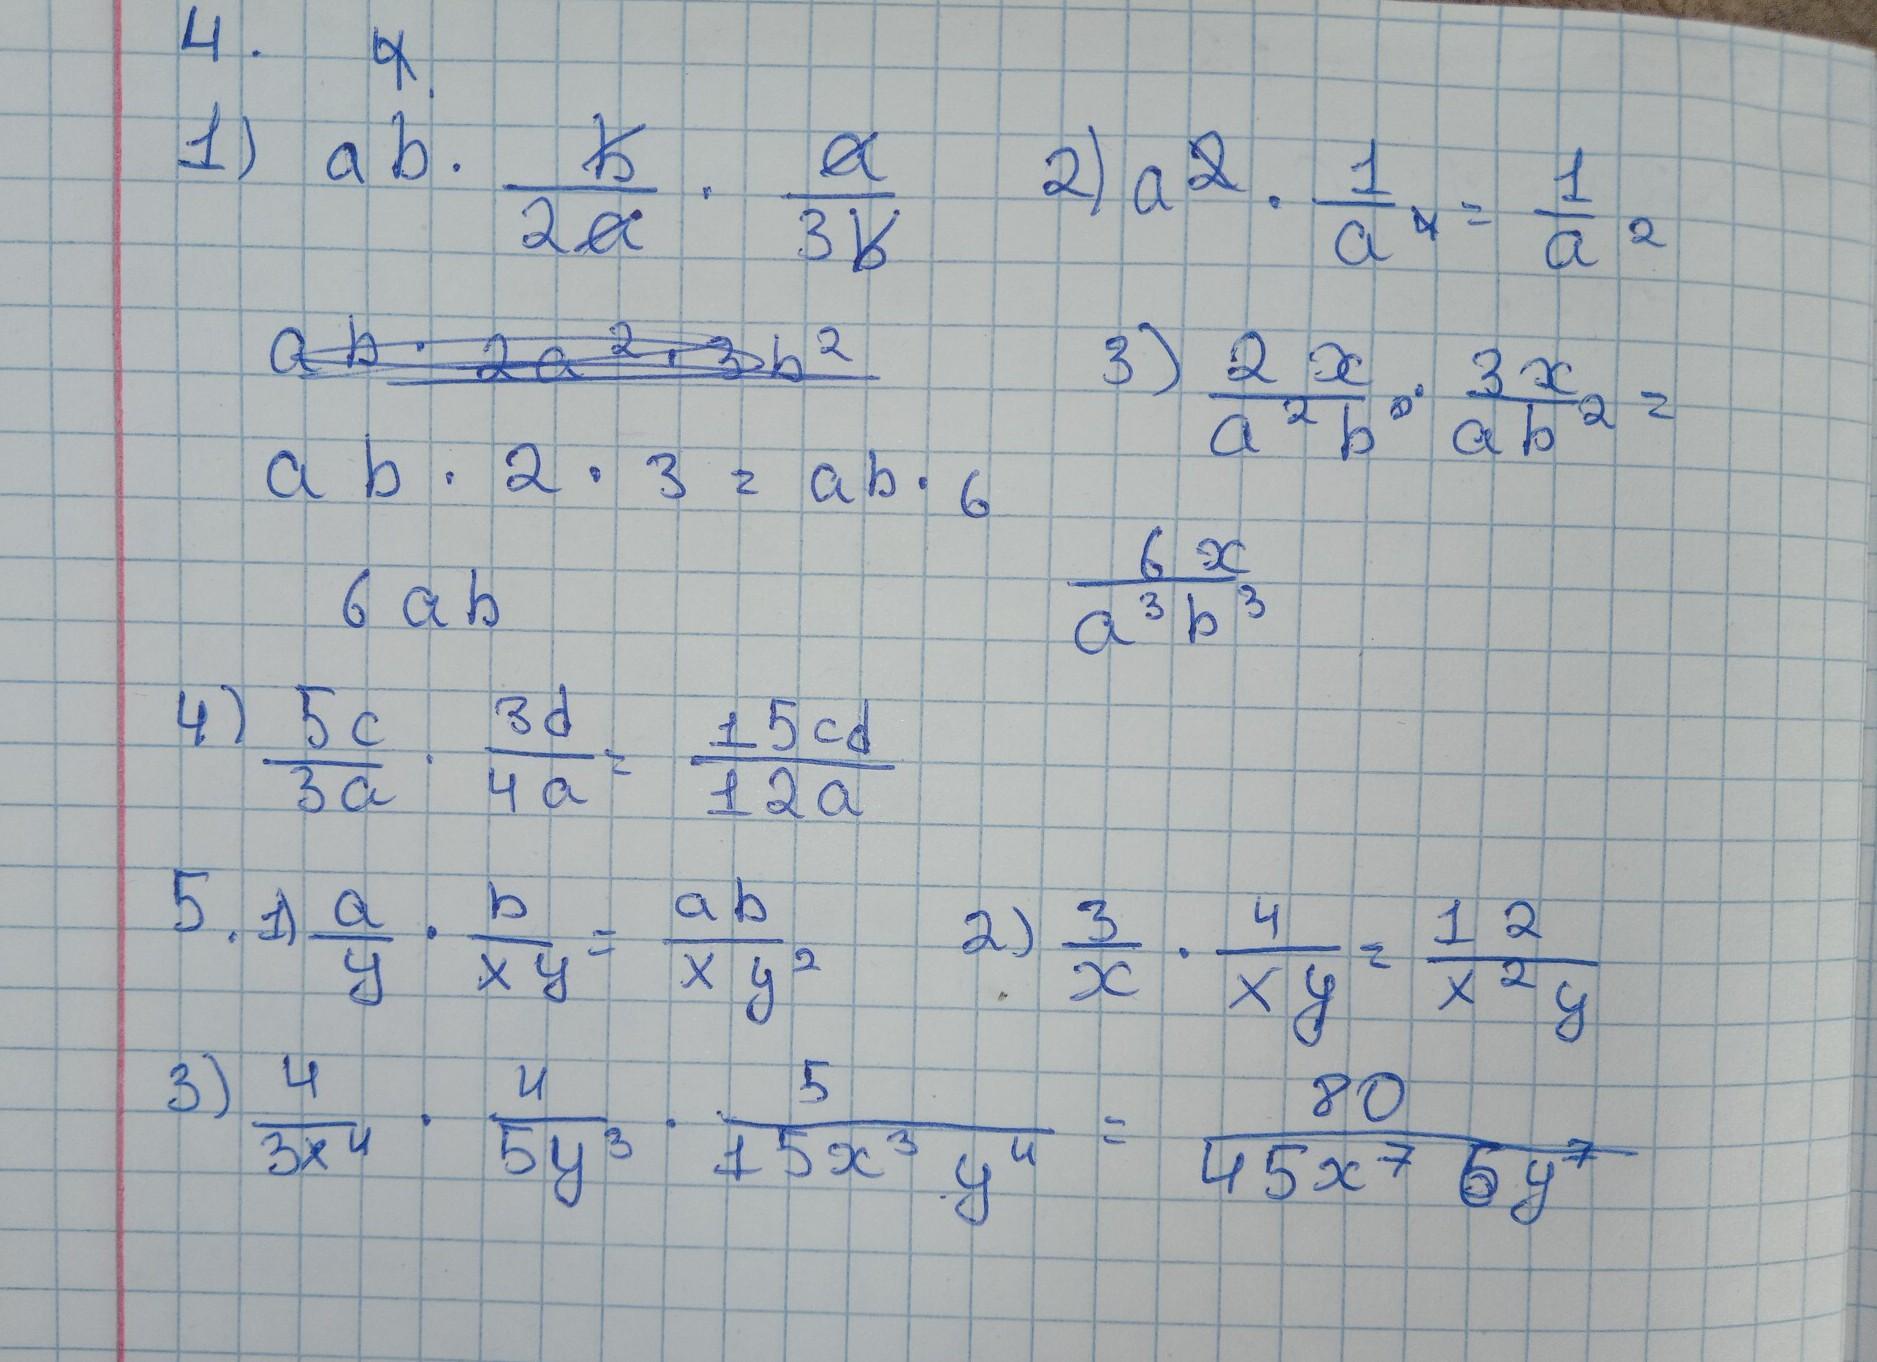 4.
1) ab · b/2a · a/3b 2) a² · 1/a⁴ = 1/a²
ab · 2a² · 3b² 3) 2x/a²b · 3x/ab² =
ab · 2 · 3 = ab · 6
6x/a³b³
6ab
4) 5c/3a · 3d/4a = 15cd/12a
5. 1) a/y · b/xy = ab/xy² 2) 3/x · 4/xy = 12/x²y
3) 4/3x⁴ · 4/5y³ · 5/15x³y⁴ = 80/45x⁷5y⁷